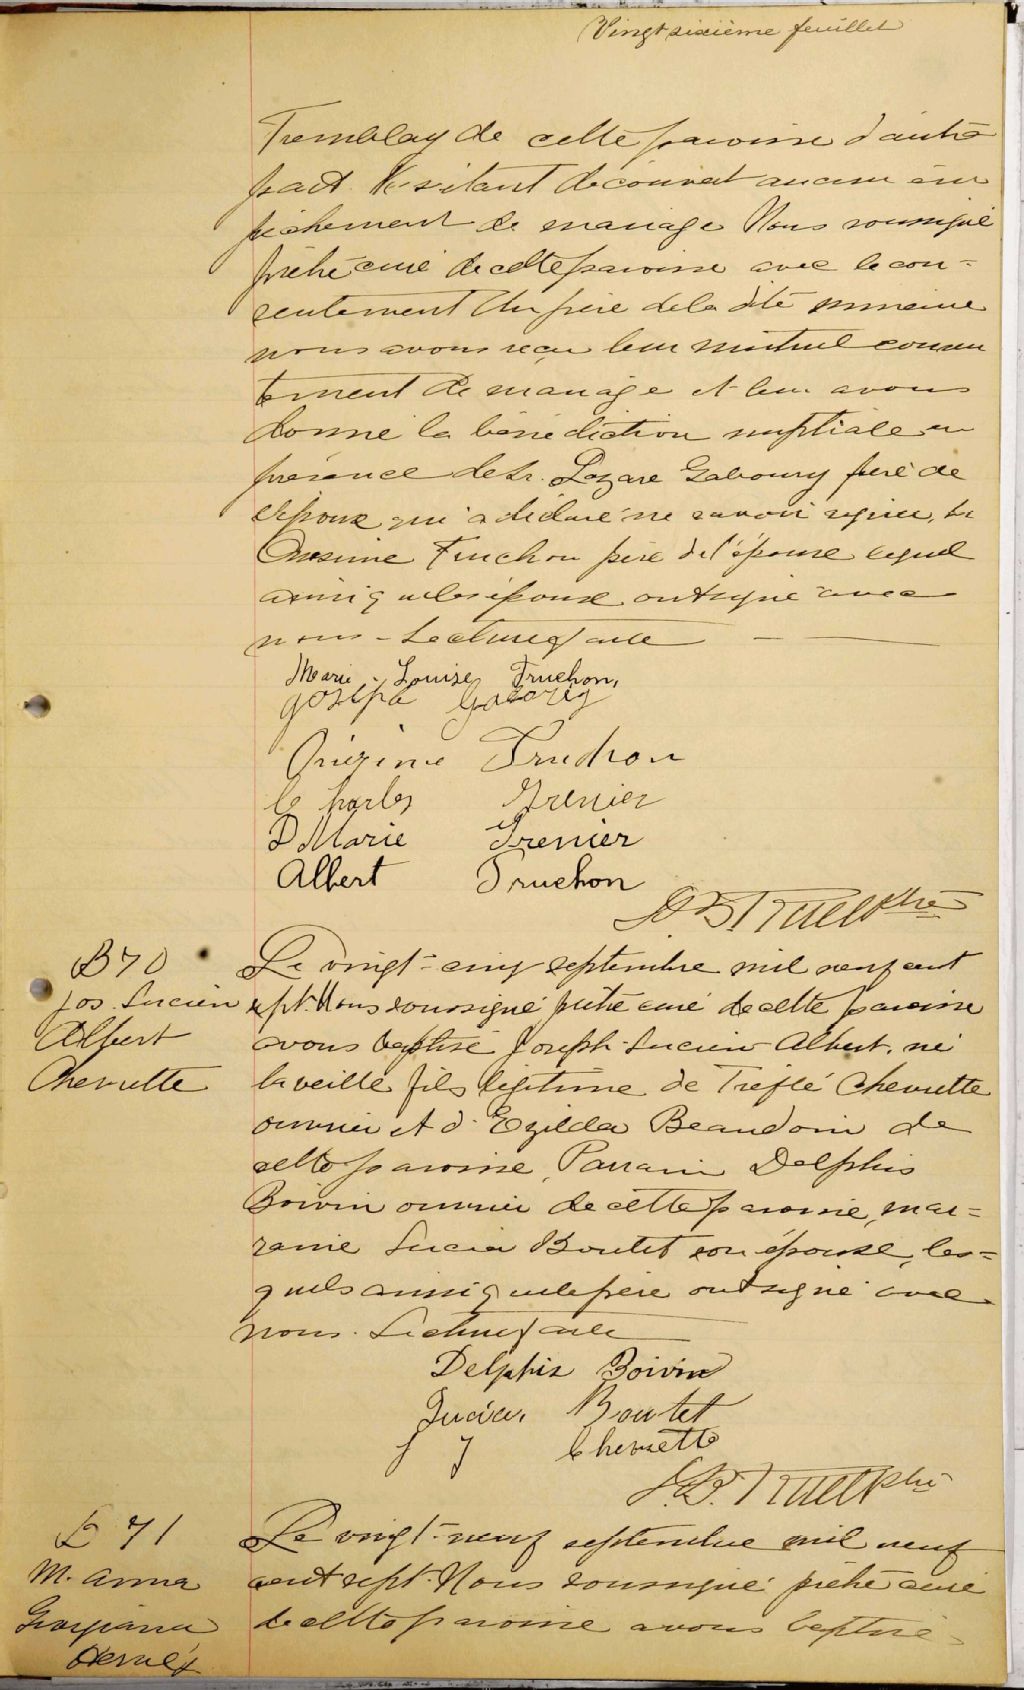 Vingt sixième feuillet
Tremblay de cette paroisse d'autre
part. N'existant découvert aucun em
pêchement de mariage Nous soussigné
prêtre curé de cette paroisse avec le con=
sentement du père de la dite mineure
nous avons reçu leur mutuel consen
tement de mariage et leur avons
donné la bénédiction nuptiale en
présence de Sr. Lazare Gaboury père de
l'époux qui a déclaré ne savoir signer, de
Onésime Truchon père de l'épouse lequel
ainsi que les époux ont signé avec
nous - Lecture faite
Marie - Louise Truchon,
Joseph Gabory
Onézime Truchon
Charles Grenier
D Marie Grenier
Albert Truchon
J.B. Ruel Ptre
B 70
Jos. Lucien
Albert
Chevrette
Le vingt-cinq septembre mil neuf cent
sept. Nous soussigné prêtre curé de cette paroisse
avons baptisé Joseph-Lucien-Albert, né
la veille fils légitime de Trefflé Chevrette
ouvrier et d'Ezilda Beaudoin de
cette paroisse, Parrain Delphis
Boivin ouvrier de cette paroisse, mar=
raine Lucia Boutet son épouse, les=
quels ainsi que le père ont signé avec
nous. Lecture faite
Delphis Boivin
Lucia Boutet
J J Chevrette
J.B. Ruel Ptre
B 71
M. Anna
Georgianna
Le vingt-neuf septembre mil neuf
cent sept. Nous soussigné prêtre curé
de cette paroisse avons baptisé